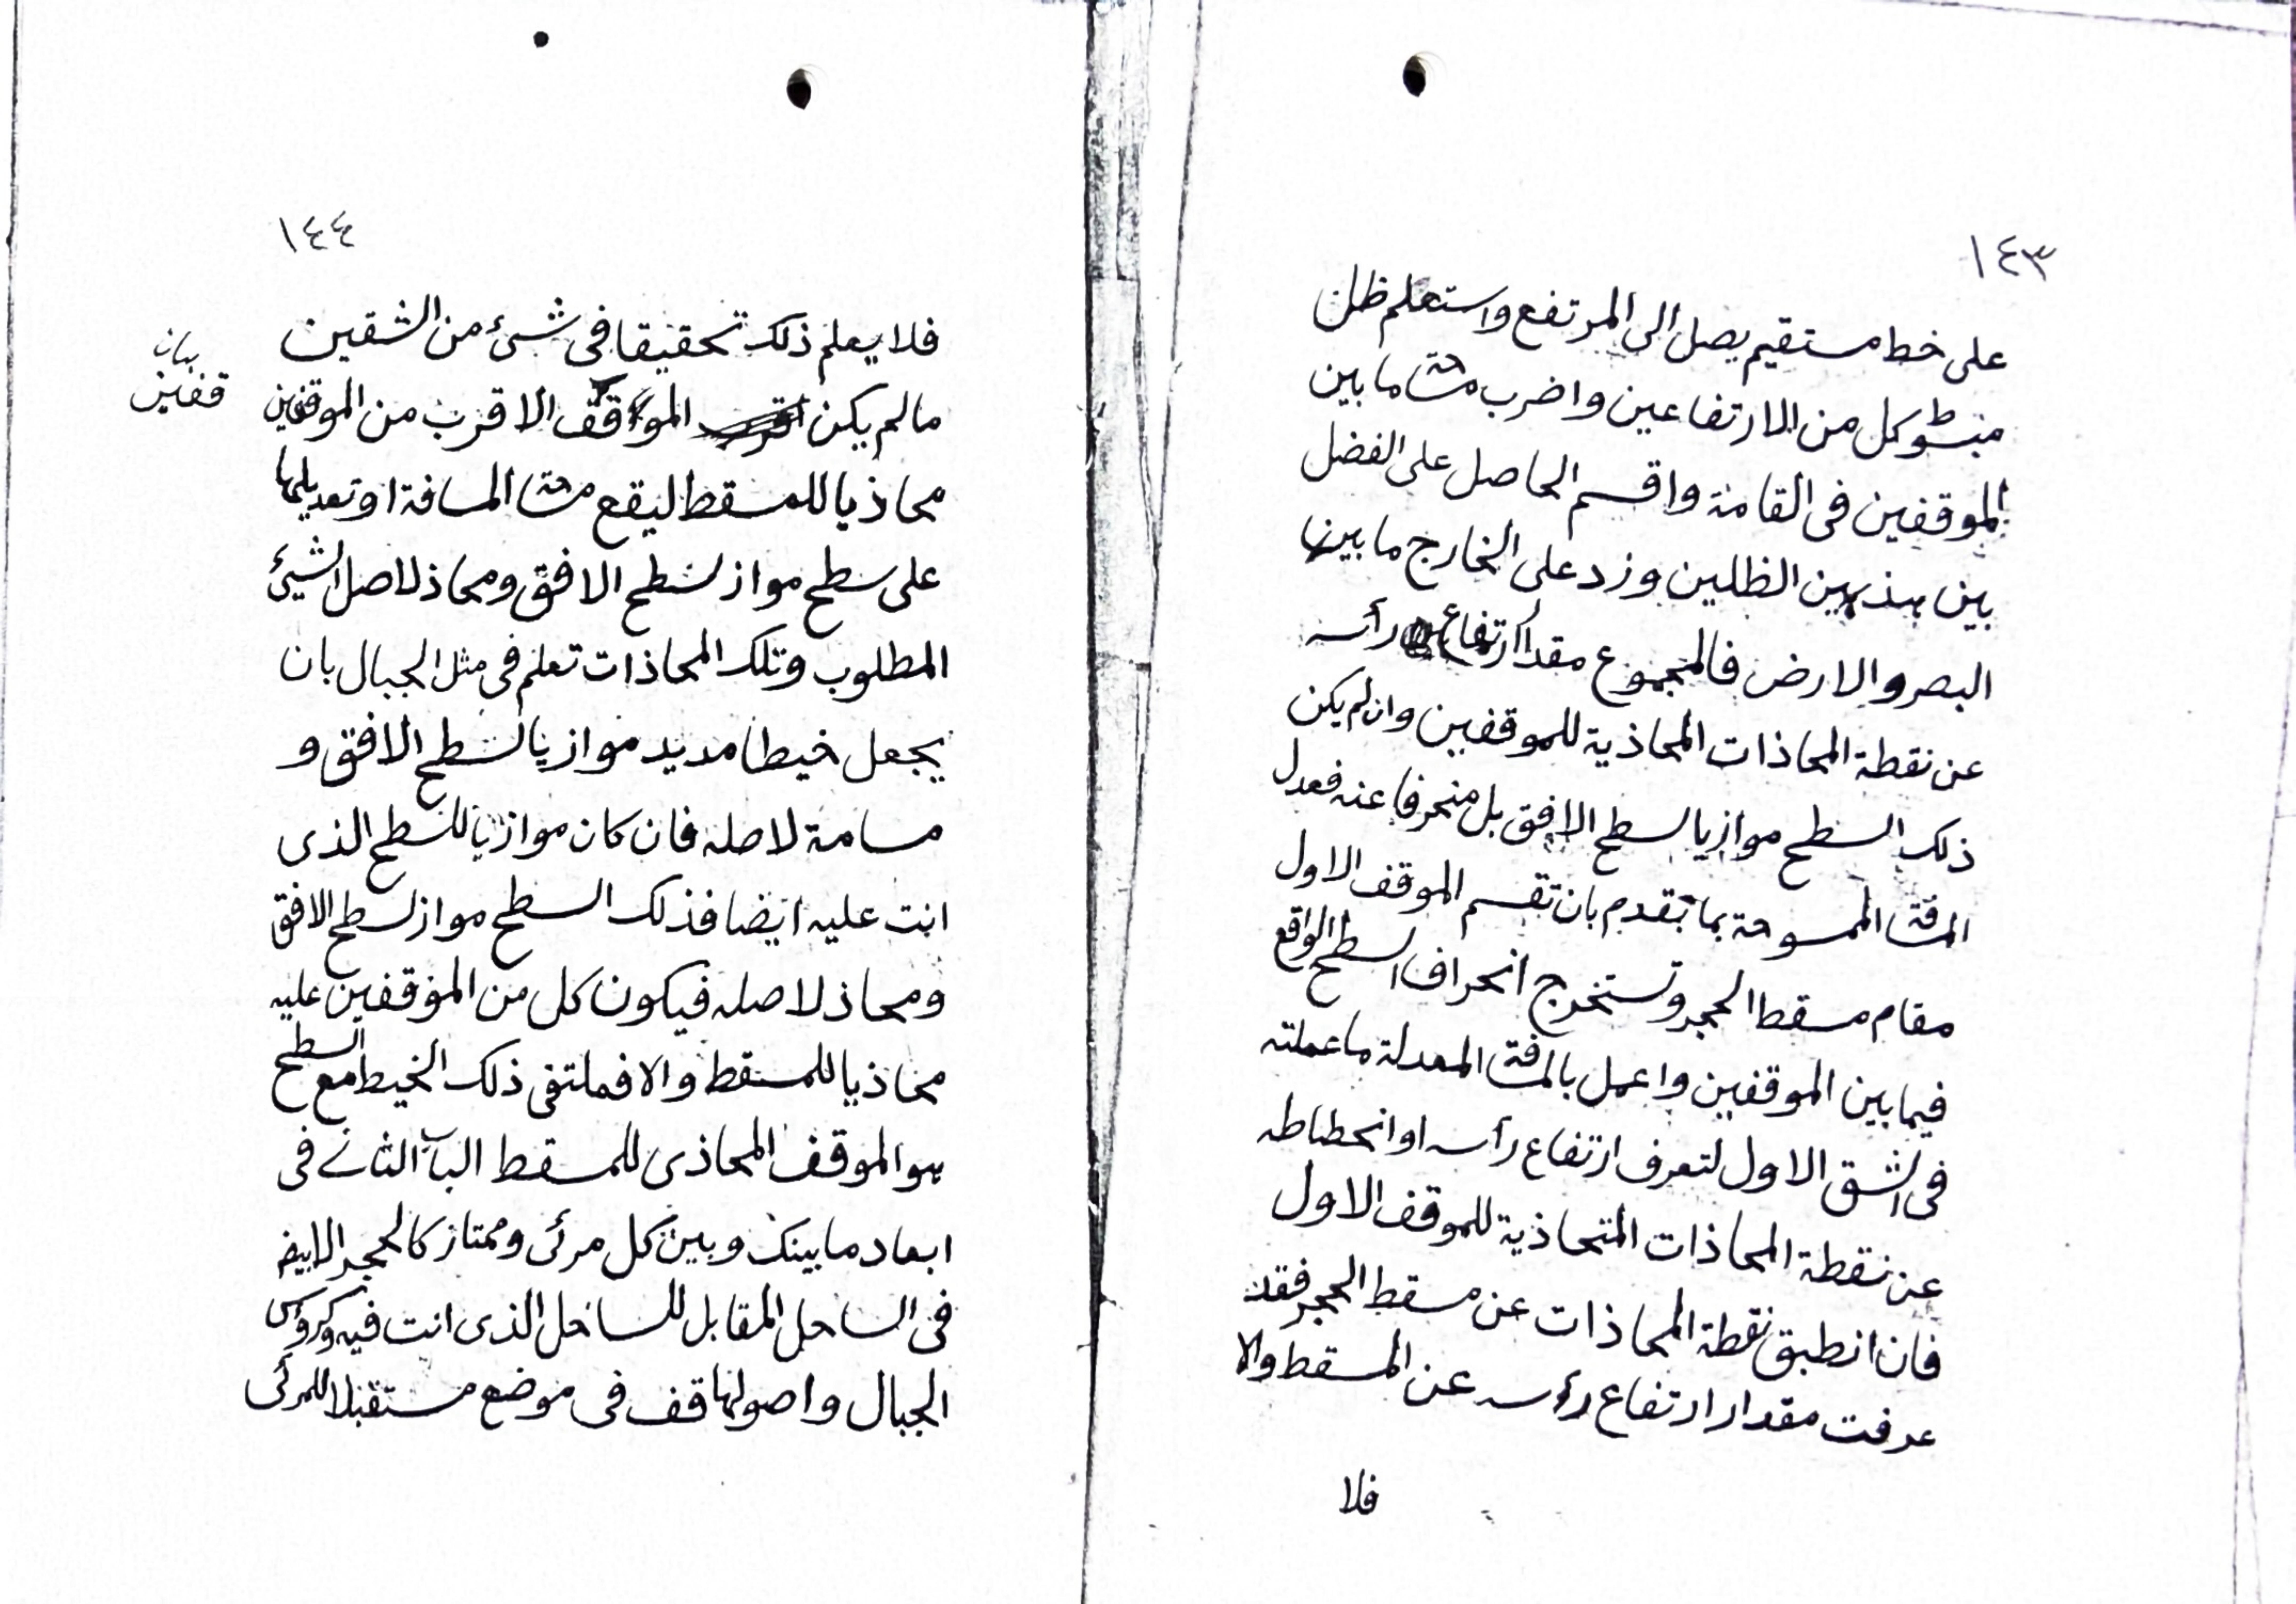 ١٤٣
على خط مستقيم يصل الى المرتفع واستعلم ظل
كل من الارتفاعين واضرب ما بين
الموقفين فى القامة واقسم الحاصل على الفضل
بين هذين الظلين وزد على الخارج ما بين
البصر والارض فالمجموع مقدار ارتفاع رأسه
عن نقطة المحاذات المحاذية للموقفين وان لم يكن
ذلك السطح موازيا لسطح الافق بل منحرفا عنه فعدل
الممسوحة بما تقدم بان تقسم الموقف الاول
مقام مسقط الحجر وتستخرج انحراف السطح الواقع
فيما بين الموقفين واعمل المعدلة ما عملته
فى الشق الاول لتعرف ارتفاع رأسه او انحطاطه
عن نقطة المحاذات المتحاذية للموقف الاول
فان انطبق نقطة المحاذات عن مسقط الحجر فقد
عرفت مقدار ارتفاع رؤسه عن المسقط والا
فلا
١٤٤
فلا يعلم ذلك تحقيقا فى شئ من الشقين
مالم يكن الموقف الاقرب من الموقفين
محاذيا للمسقط ليقع المسافة او تعديلها
على سطح مواز لسطح الافق ومحاذ لاصل الشئ
المطلوب وتلك المحاذات تعلم فى مثل الجبال بان
يجعل خيطا مديد موازيا لسطح الافق و
مسامة لاصله فان كان موازيا للسطح الذى
انت عليه ايضا فذلك السطح مواز لسطح الافق
ومحاذ لاصله فيكون كل من الموقفين عليه
محاذيا للمسقط والا فملتقى ذلك الخيط مع السطح
هو الموقف المحاذى للمسقط الثانى فى
ابعاد ما بينك وبين كل مرئى وممتاز كالحجر الابيض
فى الساحل المقابل للساحل الذى انت فيه وكرؤس
الجبال واصولها قف فى موضع مستقبلا للمرئى
بيان
قفين